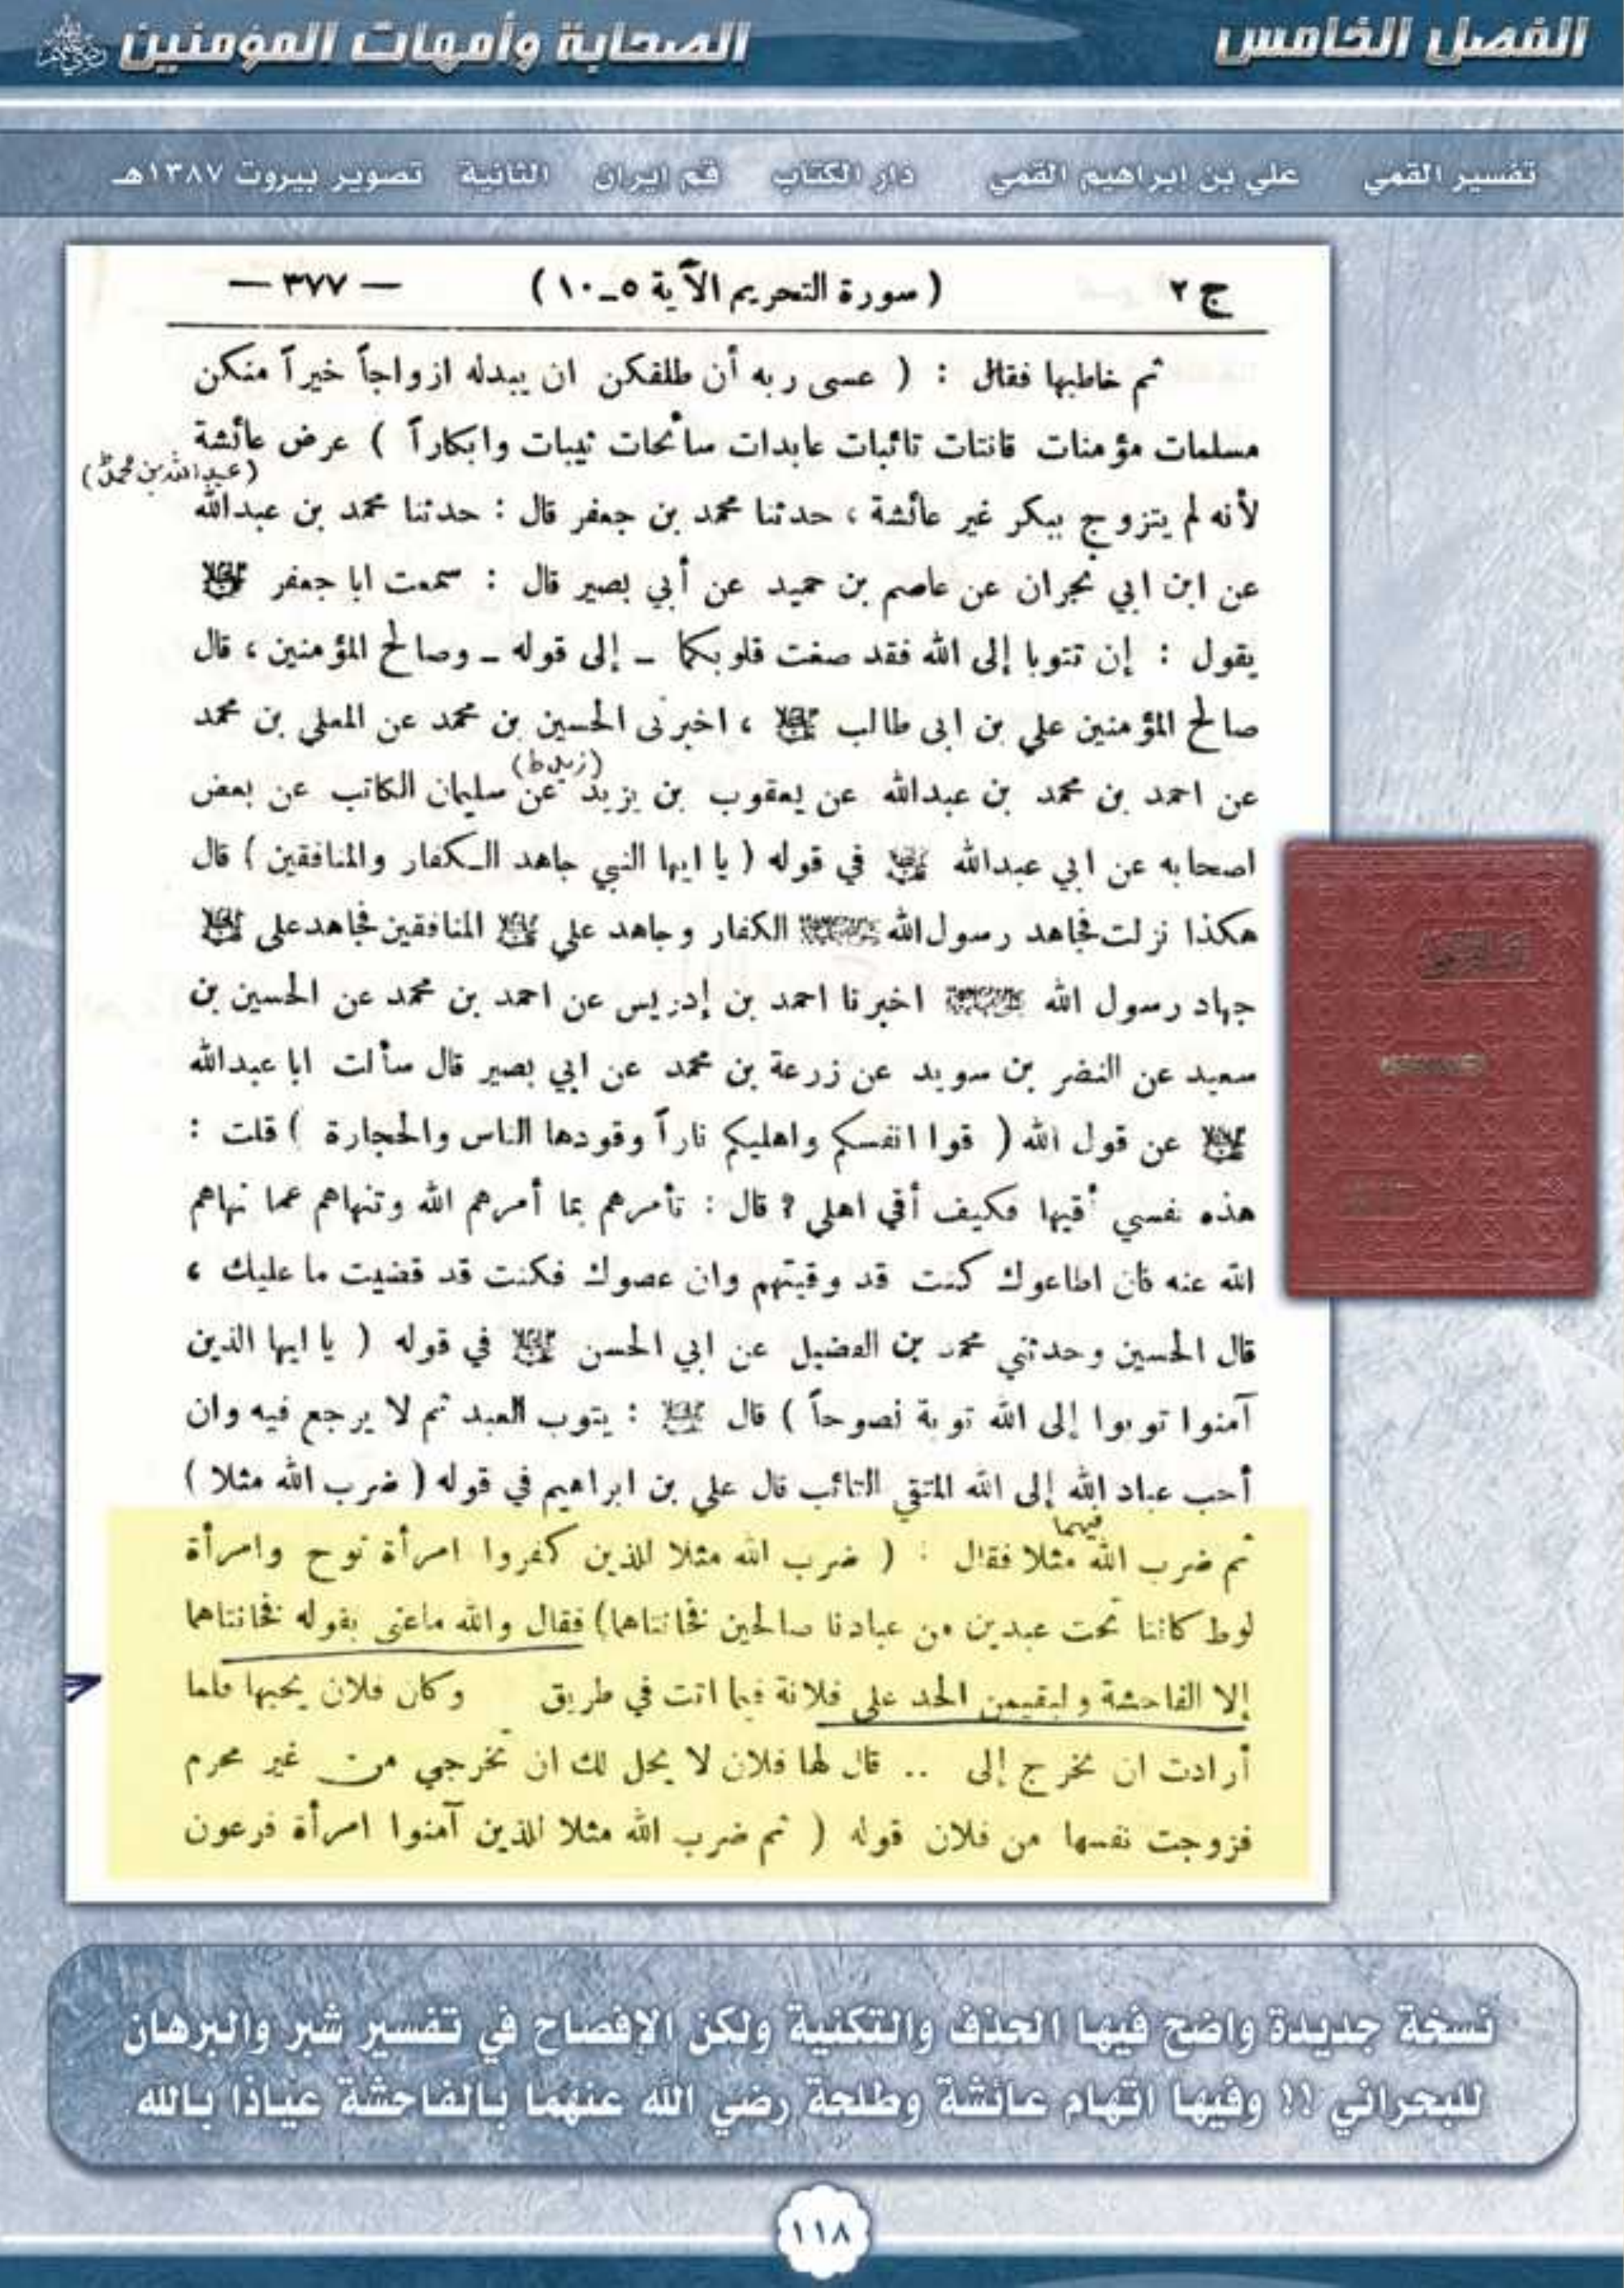 الفصل الخامس
الصحابة وأمهات المؤمنين
تفسير القمي علي بن إبراهيم القمي دار الكتاب قم ايران الثانية تصوير بيروت ١٣٨٧هـ
ج ٢ ( سورة التحريم الآية ٥ـ١٠ ) — ٣٧٧ —
ثم خاطبها فقال : ( عسى ربه أن طلقكن ان يبدله ازواجاً خيراً منكن
مسلمات مؤمنات قانتات تائبات عابدات سائحات ثيبات وابكاراً ) عرض عائشة
(عبدالله بن محمد)
لأنه لم يتزوج ببكر غير عائشة ، حدثنا محمد بن جعفر قال : حدثنا محمد بن عبدالله
عن ابن ابي نجران عن عاصم بن حميد عن أبي بصير قال : سمعت ابا جعفر عليه السلام
يقول : إن تتوبا إلى الله فقد صغت قلوبكما ـ إلى قوله ـ وصالح المؤمنين ، قال
صالح المؤمنين علي بن ابى طالب عليه السلام ، اخبرنى الحسين بن محمد عن المعلي بن محمد
عن احمد بن محمد بن عبدالله عن يعقوب بن يزيد عن سليمان الكاتب عن بعض
اصحابه عن ابي عبدالله عليه السلام في قوله ( يا ايها النبي جاهد الكفار والمنافقين ) قال
هكذا نزلت فجاهد رسول الله صلى الله عليه وآله الكفار وجاهد علي عليه السلام المنافقين فجاهد على عليه السلام
جهاد رسول الله صلى الله عليه وآله اخبرنا احمد بن إدريس عن احمد بن محمد عن الحسين بن
سعيد عن النضر بن سويد عن زرعة بن محمد عن ابي بصير قال سألت ابا عبدالله
عليه السلام عن قول الله ( قوا انفسكم واهليكم ناراً وقودها الناس والحجارة ) قلت :
هذه نفسي أقيها فكيف أقي اهلي ؟ قال : تأمرهم بما أمرهم الله وتنهاهم عما نهاهم
الله عنه فان اطاعوك كنت قد وقيتهم وان عصوك فكنت قد قضيت ما عليك ،
قال الحسين وحدثني محمد بن الفضيل عن ابي الحسن عليه السلام في قوله ( يا ايها الذين
آمنوا توبوا إلى الله توبة نصوحاً ) قال عليه السلام : يتوب العبد ثم لا يرجع فيه وان
أحب عباد الله إلى الله المتقي التائب قال علي بن ابراهيم في قوله ( ضرب الله مثلا )
فيهما
ثم ضرب الله مثلا فقال : ( ضرب الله مثلا للذين كفروا امرأة نوح وامرأة
لوط كانتا تحت عبدين من عبادنا صالحين فخانتاهما) فقال والله ماعنى بقوله فخانتاهما
إلا الفاحشة وليقيمن الحد على فلانة فيما اتت في طريق وكان فلان يحبها فلما
أرادت ان تخرج إلى .. قال لها فلان لا يحل لك ان تخرجي من غير محرم
فزوجت نفسها من فلان قوله ( ثم ضرب الله مثلا للذين آمنوا امرأة فرعون
نسخة جديدة واضح فيها الحذف والتكنية ولكن الإفصاح في تفسير شبر والبرهان
للبحراني !! وفيها اتهام عائشة وطلحة رضي الله عنهما بالفاحشة عياذا بالله
١١٨